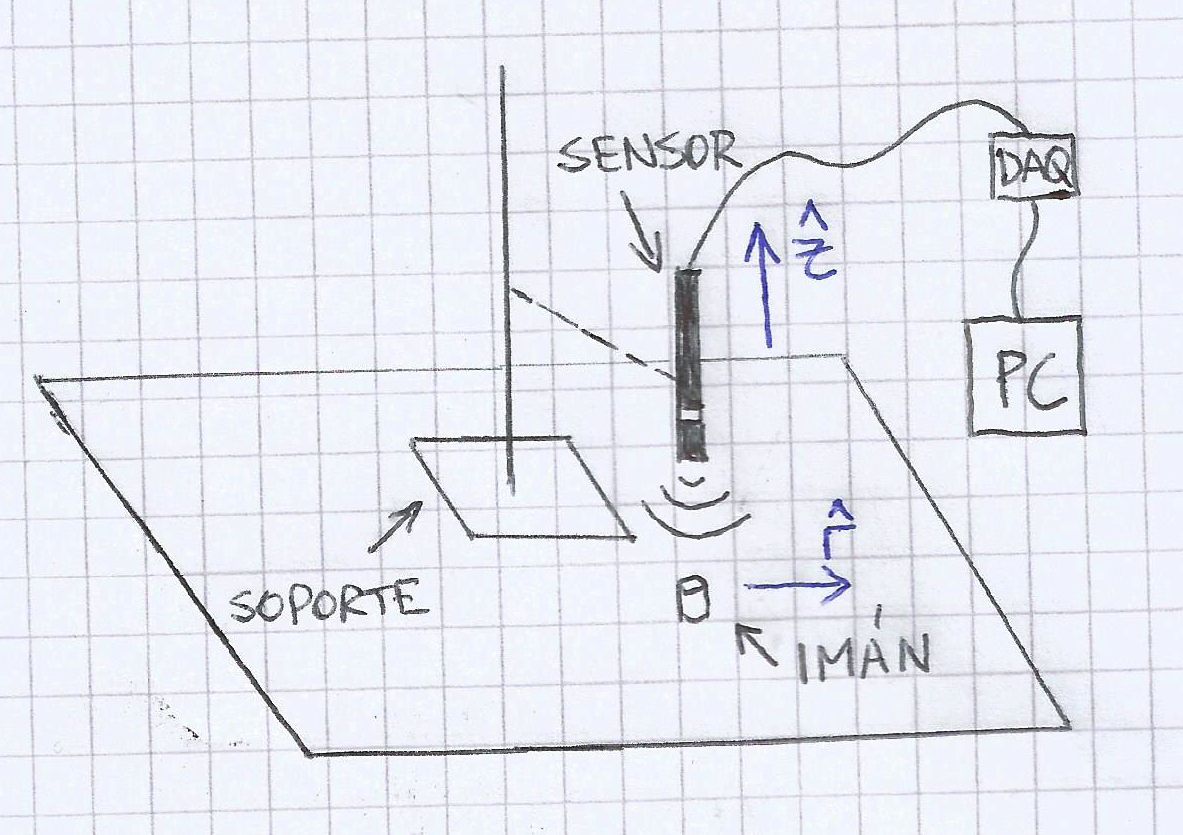 SENSOR
DAQ
ẑ
PC
r̂
SOPORTE
IMÁN